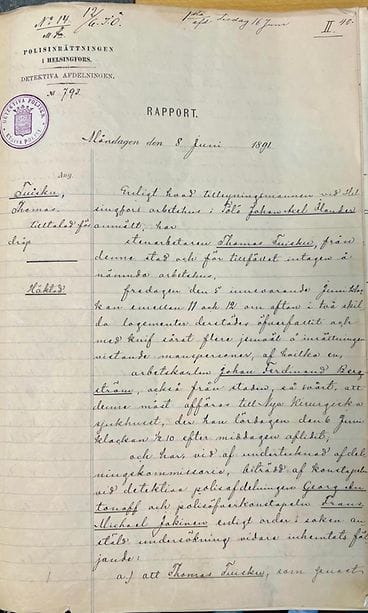 No 14.
12/6 T.Ö.
afd. Lördag 16 Juni
II
POLISINRÄTTNINGEN
I HELSINGFORS.
DETEKTIVA AFDELNINGEN.
№ 792
DETEKTIVA POLISEN
RAPPORT.
Måndagen den 8 Juni 1891
Ang.
Tuisku,
Thomas
tilltalad för
dråp
Häktad
Enligt hvad tillsyningsmannen vid Hel
singfors arbetshus i Tölö Johan Axel Ölander
anmält, har
stenarbetaren Thomas Tuisku, från
denna stad och för tillfället intagen å
nämnda arbetshus,
fredagen den 5 innevarande Juni kloc
kan emellan 11 och 12 om aften i två skil
da logementer derstädes öfverfallit och
med knif sårat flere jemväl å inrättningen
vistande manspersoner, af hvilka en,
arbetskarlen Johan Ferdinand Berg
ström, också från staden, så svårt, att
denne måst afföras till Nya Kirurgiska
sjukhuset, der han lördagen den 6 Juni
klockan ½ 10 efter middagen aflidit;
och har, vid af undertecknad afdel
ningskommissarie, biträdd af konstapeln
vid detektiva polisafdelningen Georg
och polisöfverkonstapeln Frans
Michael Jokinen enligt order i saken an
stäld undersökning vidare inhemtats föl
jande:
a.) att Thomas Tuisku, som genast